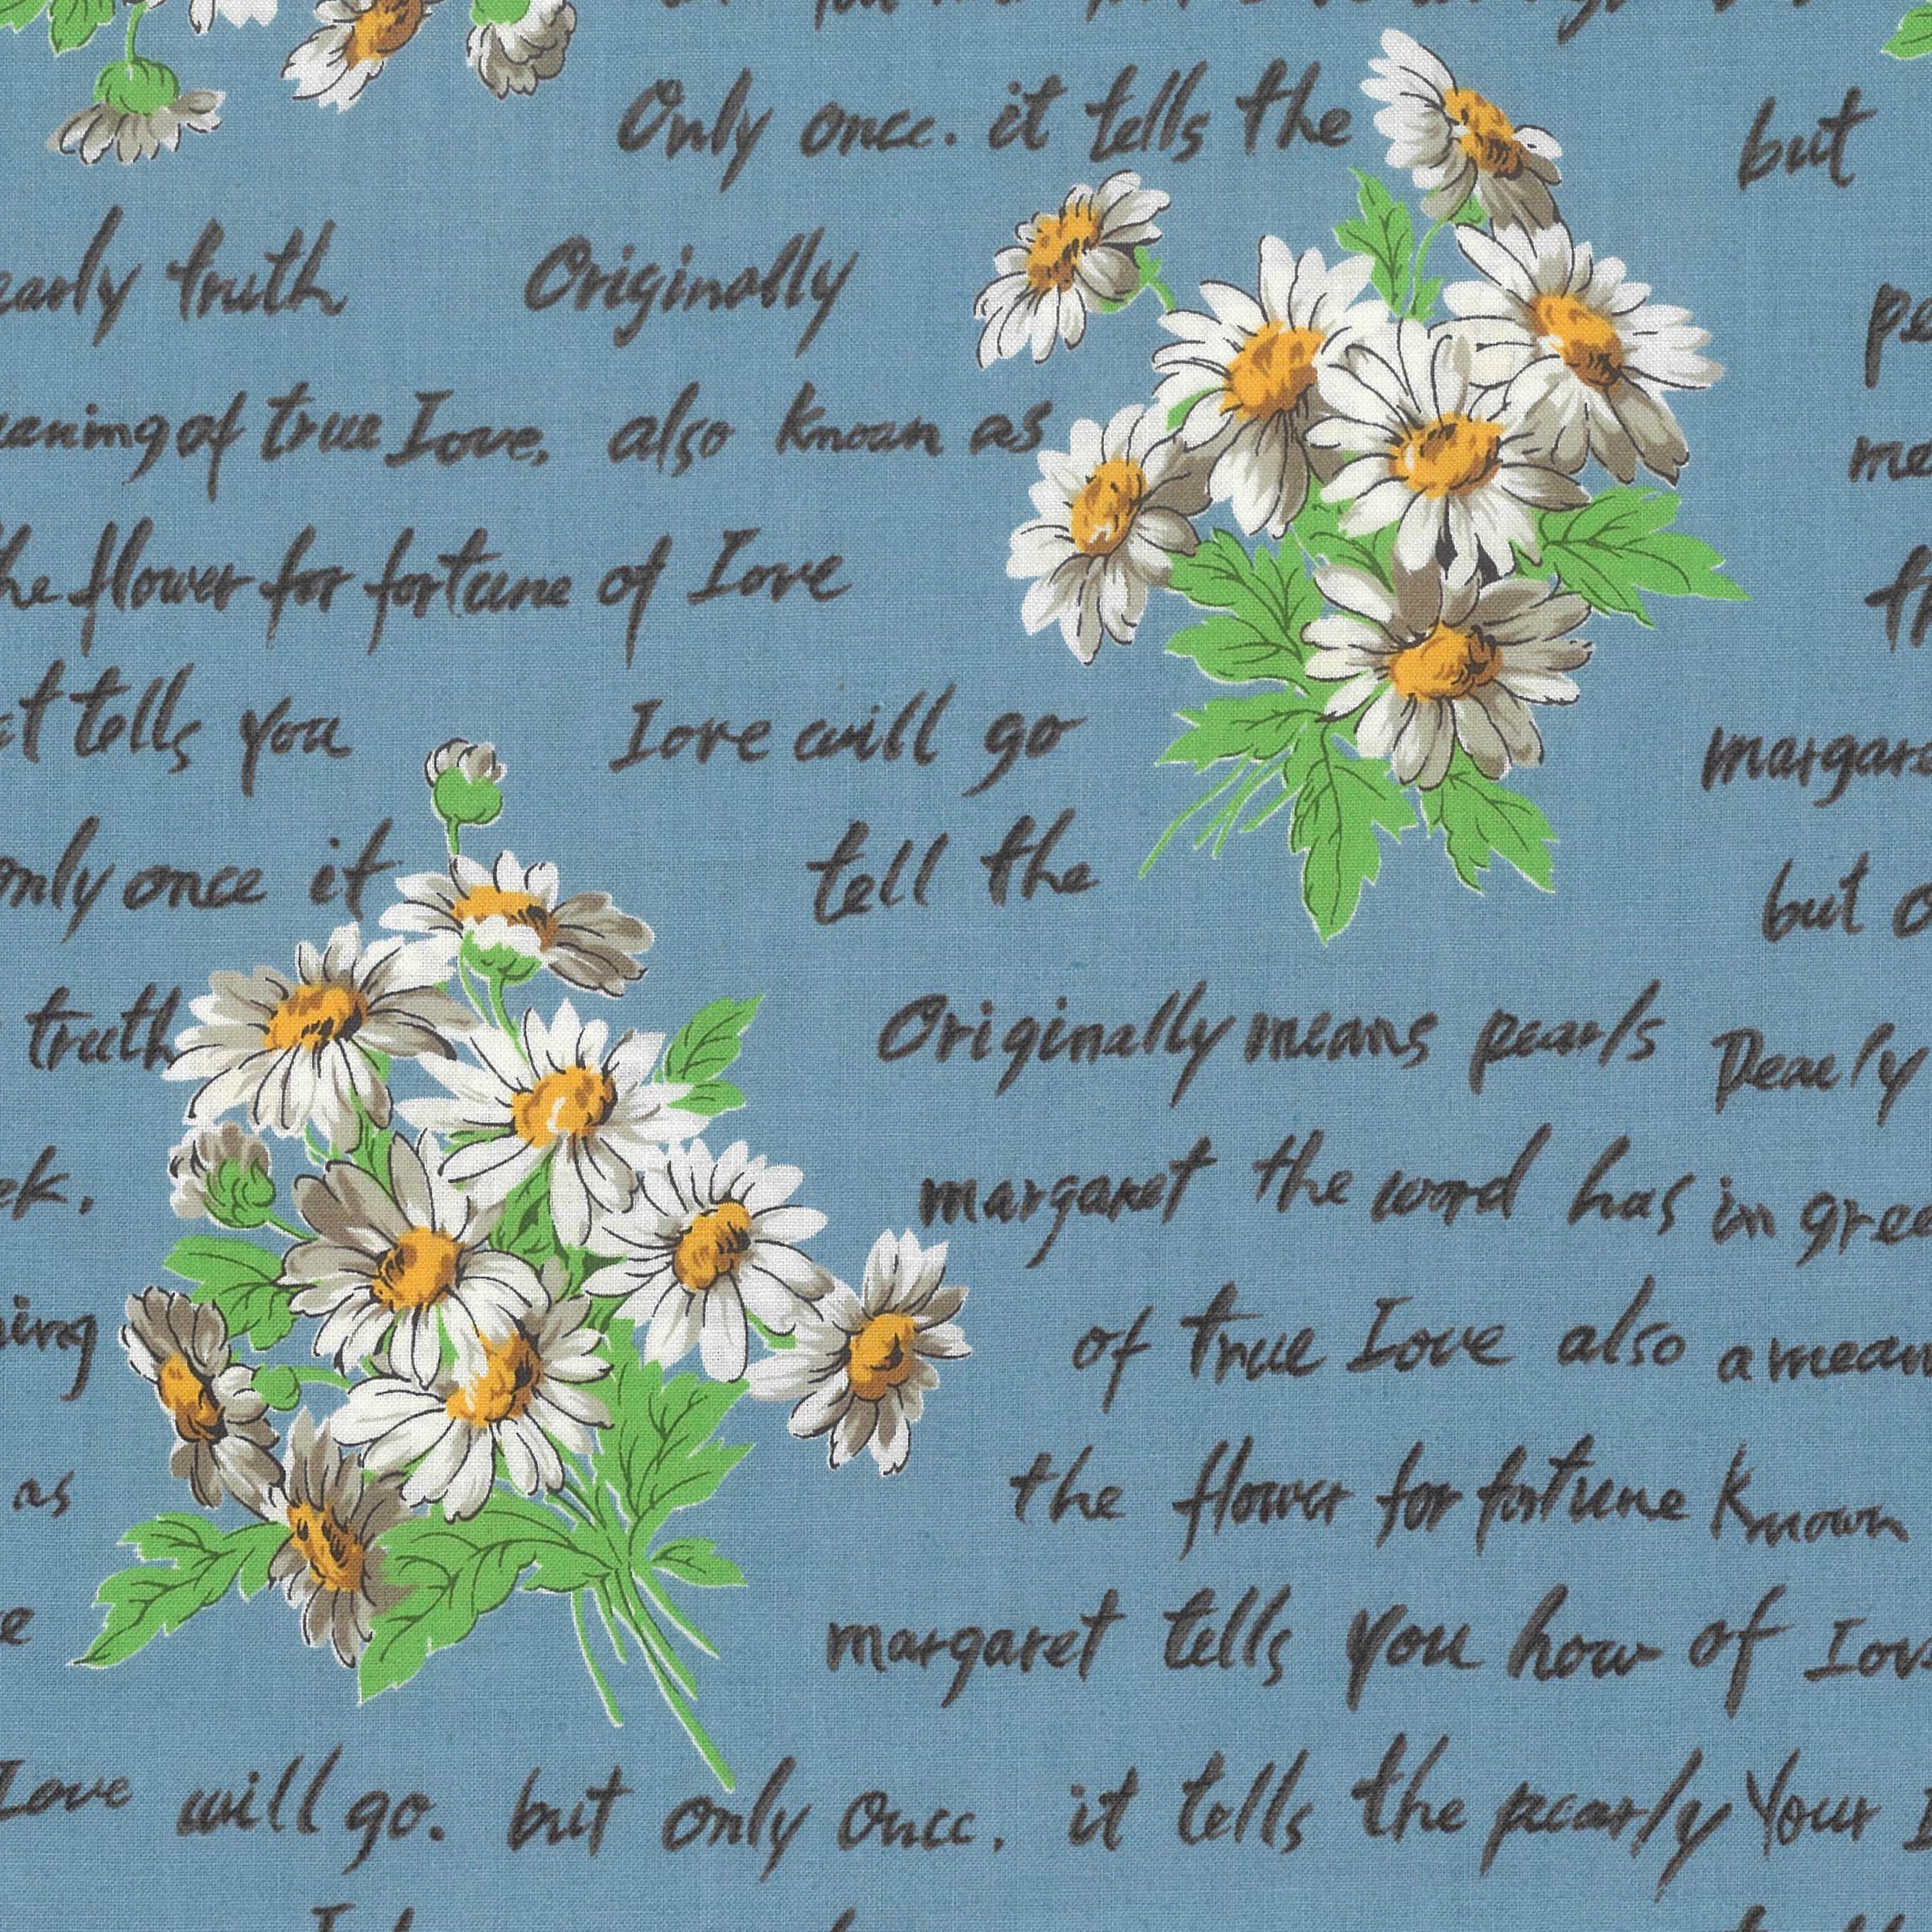 Only once. it tells the but
early truth Originally pe
eaning of true Iove, also known as me
he flower for fortune of Iove th
at tells you Iove will go margare
only once it tell the but o
truth Originally means pearls Dearly
ek. margaret the word has in gree
ning of true Iove also a mean
as the flower for fortune Known
e margaret tells you how of Iove
Iove will go. but only once. it tells the pearly Your I